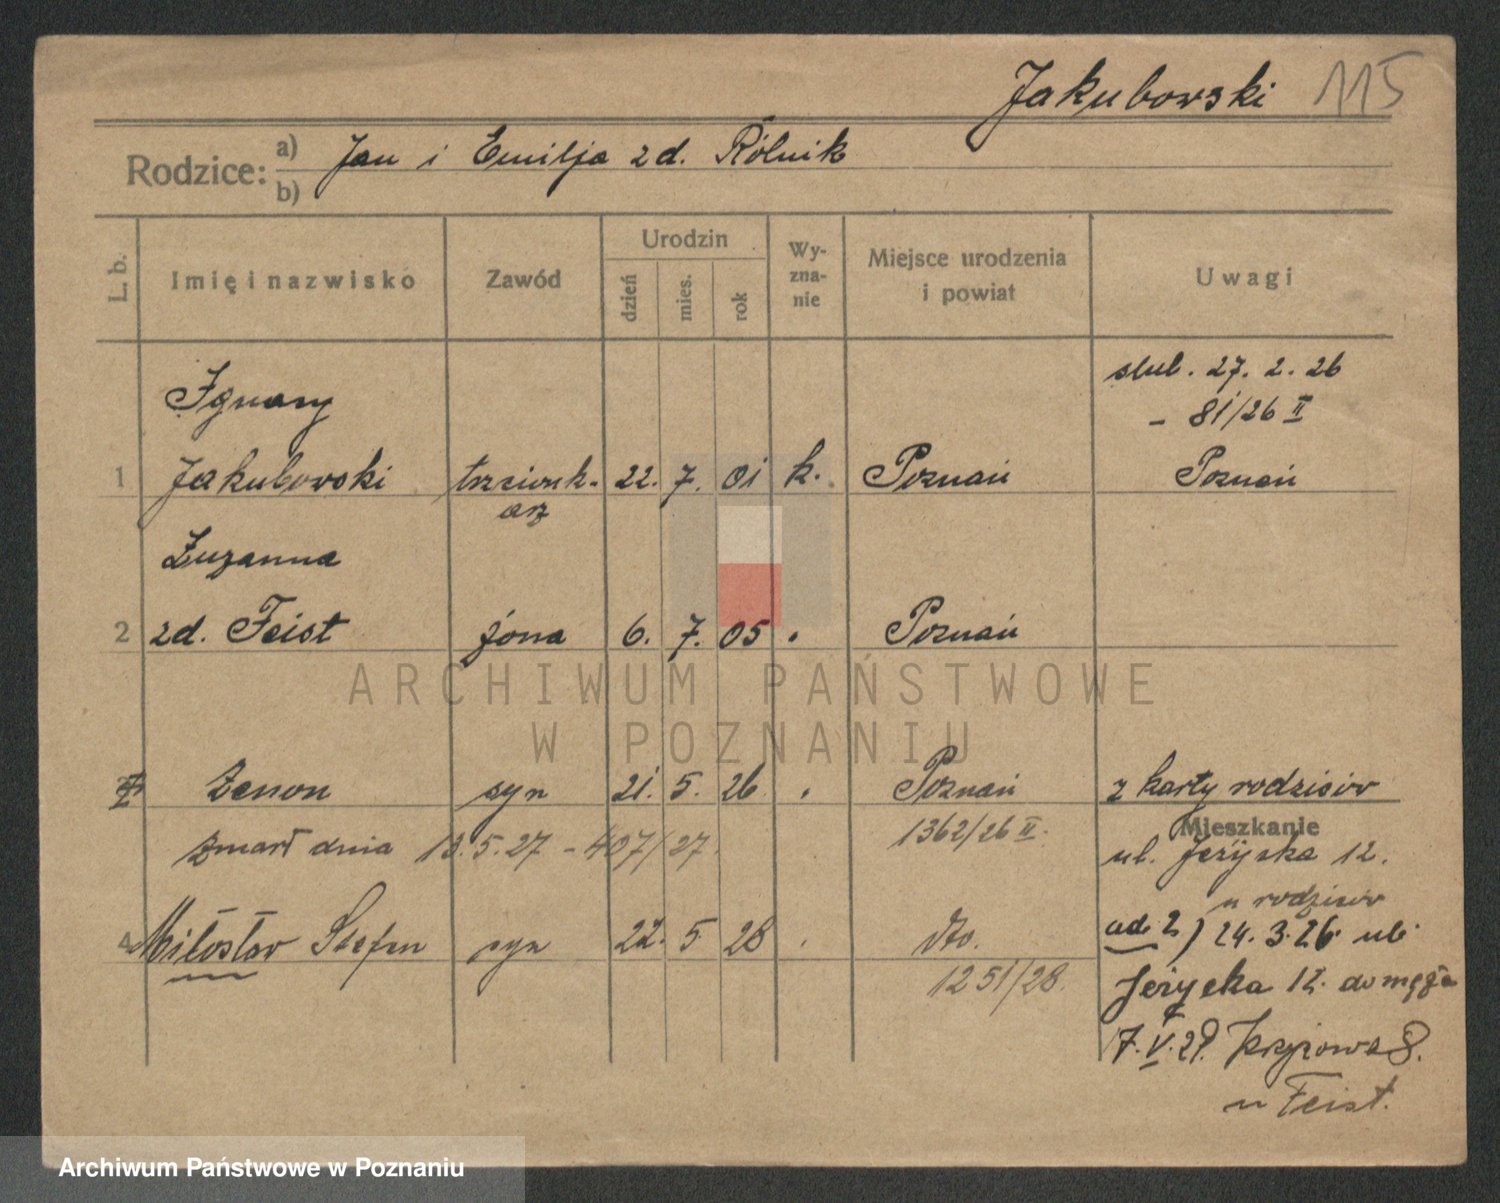 Jakubowski 115
Rodzice: a) Jan i Emilja zd. Rólnik
b)
L. b. Imię i nazwisko Zawód Urodzin dzień mies. rok Wyznanie Miejsce urodzenia i powiat Uwagi
slub. 27. 2. 26
Ignacy
- 81/26 II
1 Jakubowski 22. 7. 01 k. Poznań Poznań
arz
Zuzanna
2 zd. Feist żona 6. 7. 05 . Poznań
ARCHIWUM PAŃSTWOWE
W POZNANIU
Zenon syn 21. 5. 26 . Poznań z karty rodziców
Mieszkanie
zmarł dnia 13.5.27 - 407/27 1362/26 II. ul. Jeżycka 12.
u rodziców
4 Miłosław Stefan syn 22. 5 28 . dto. ad 2) 24. 3. 26 ul.
1251/28. Jeżycka 12. do męża
17. V. Krzyżowa 8.
u Feist.
Archiwum Państwowe w Poznaniu